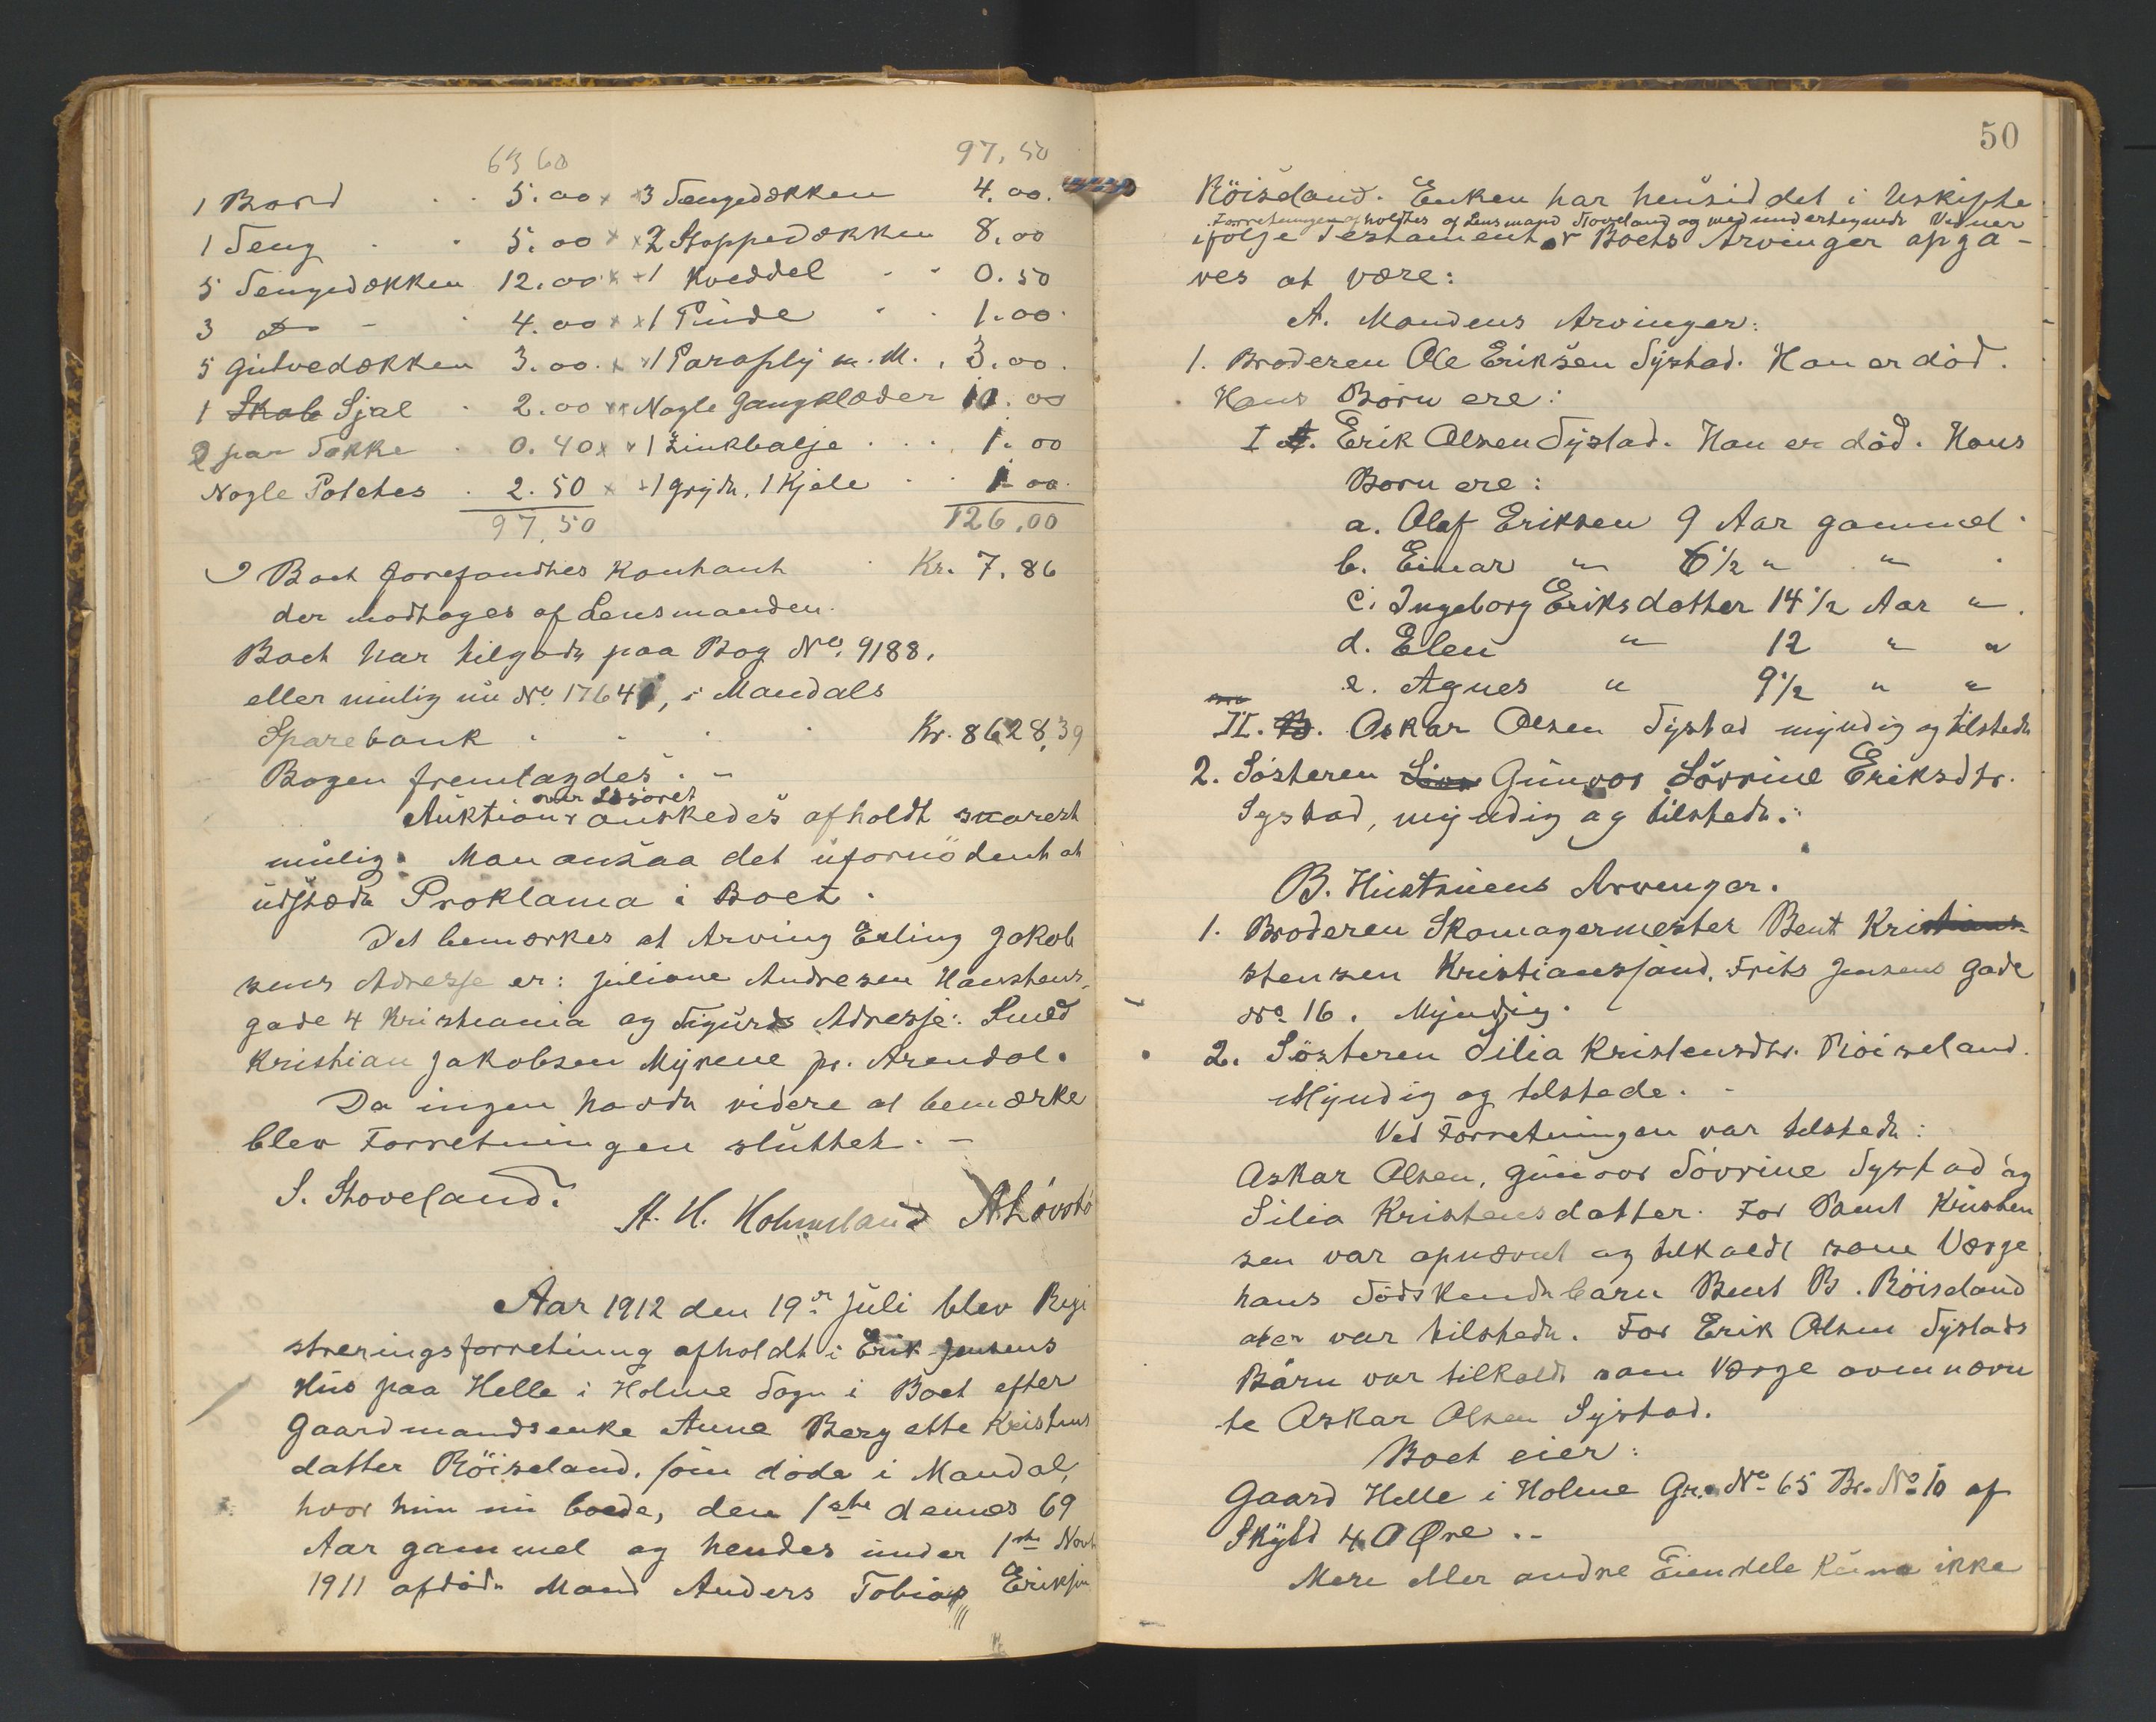 63 60
97,50
1 Bord . . 5.00 x x 3 Sengedækken 4.00.
1 Seng . . 5.00 x x 2 Stoppedækken 8.00
5 Sengedækken 12.00 x x 1 Kveddel . . 0.50
3 Do - . 4.00 x x 1 Pude . . 1.00.
5 Gulvedækken 3.00. x x 1 Paraply m. M. . 3.00.
1 Skab Sjal . 2.00 x x Nogle Gangklæder 10.00
2 par Søkke . 0.40 x x 1 Zinkbalje . . . 1.00
Nogle Potetes . 2.50 x x 1 gryde, 1 Kjele . . 1.00.
97,50
126,00
I Boet forefandtes Kontant . Kr. 7.86
der modtoges af Lensmanden.
Boet har tilgode paa Bog No. 9188,
eller mulig nu No 17641, i Mandals
Sparebank . . . . Kr. 8628,39
Bogen fremlagdes. -
over Løsøret
Auktion r ønskedes afholdt snarest
mulig. Man ansaa det ufornødent at
udstæde Proklama i Boet.
Det bemærkes at Arving Erling Jakob
sens Adresse er: Juliane Andresen Hausthens,
gade 4 Kristiania og Sigurds Adresse: Smed
Kristian Jakobsen Myrene pr. Arendal.
Da ingen havde videre at bemærke
blev Forretningen sluttet. -
S. Stoveland.
H. H. Holmesland A Løvstø
Aar 1912 den 19de Juli blev Regi
streringsforretning afholdt i Erik Jensens
Hus paa Helle i Holme Sogn i Boet efter
Gaardmandsenke Anne Bergette Kristens
datter Röiseland, som døde i Mandal,
hvor hun nu boede, den 1ste dennes 69
Aar gammel og hendes under 1ste Novb
1911 afdøde Mand Anders Tobias Eriksen
50
Röiseland. Enken har hensiddet i Uskifte
Forretningen afholdtes af Lensmand Stoveland og med undertegnede Vidner
ifølge Testament r Boets Arvinger opga-
ves at være:
A. Mandens Arvinger:
1. Broderen Ole Eriksen Systad. Han er død.
Hans Børn ere:
I A. Erik Olsen Systad. Han er død. Hans
Børn ere:
a. Olaf Eriksen 9 Aar gammel.
b. Einar " 6½ " " .
c. Ingeborg Eriksdatter 14½ Aar ".
d. Elen " 12 " "
e. Agnes " 9½ " "
II. B. Oskar Olsen Systad myndig og tilstede
2. Søsteren Gunvor Sørrine Eriksdtr.
Systad, myndig og tilstede.
B. Hustruens Arvinger.
1. Broderen Skomagermester Bent Kristians-
stensen Kristianssand, Frits Jensens Gade
No 16. Myndig.
2. Søsteren Silia Kristensdtr. Röiseland.
Myndig og tilstede. -
Ved Forretningen var tilstede:
Oskar Olsen, Gunvor Sørrine Systad og
Silia Kristensdatter. For Bent Kristen
sen var opnævnt og tilkaldt som Værge
hans Sødskendebarn Bent B. Röiseland
der var tilstede. For Erik Olsen Systads
Børn var tilkaldt som Værge ovennævn
te Oskar Olsen Systad.
Boet eier:
Gaard Helle i Holme Gr. No 65 Br. No 10 af
Skyld 40 Øre. -
Mere eller andre Eiendele kunne ikke